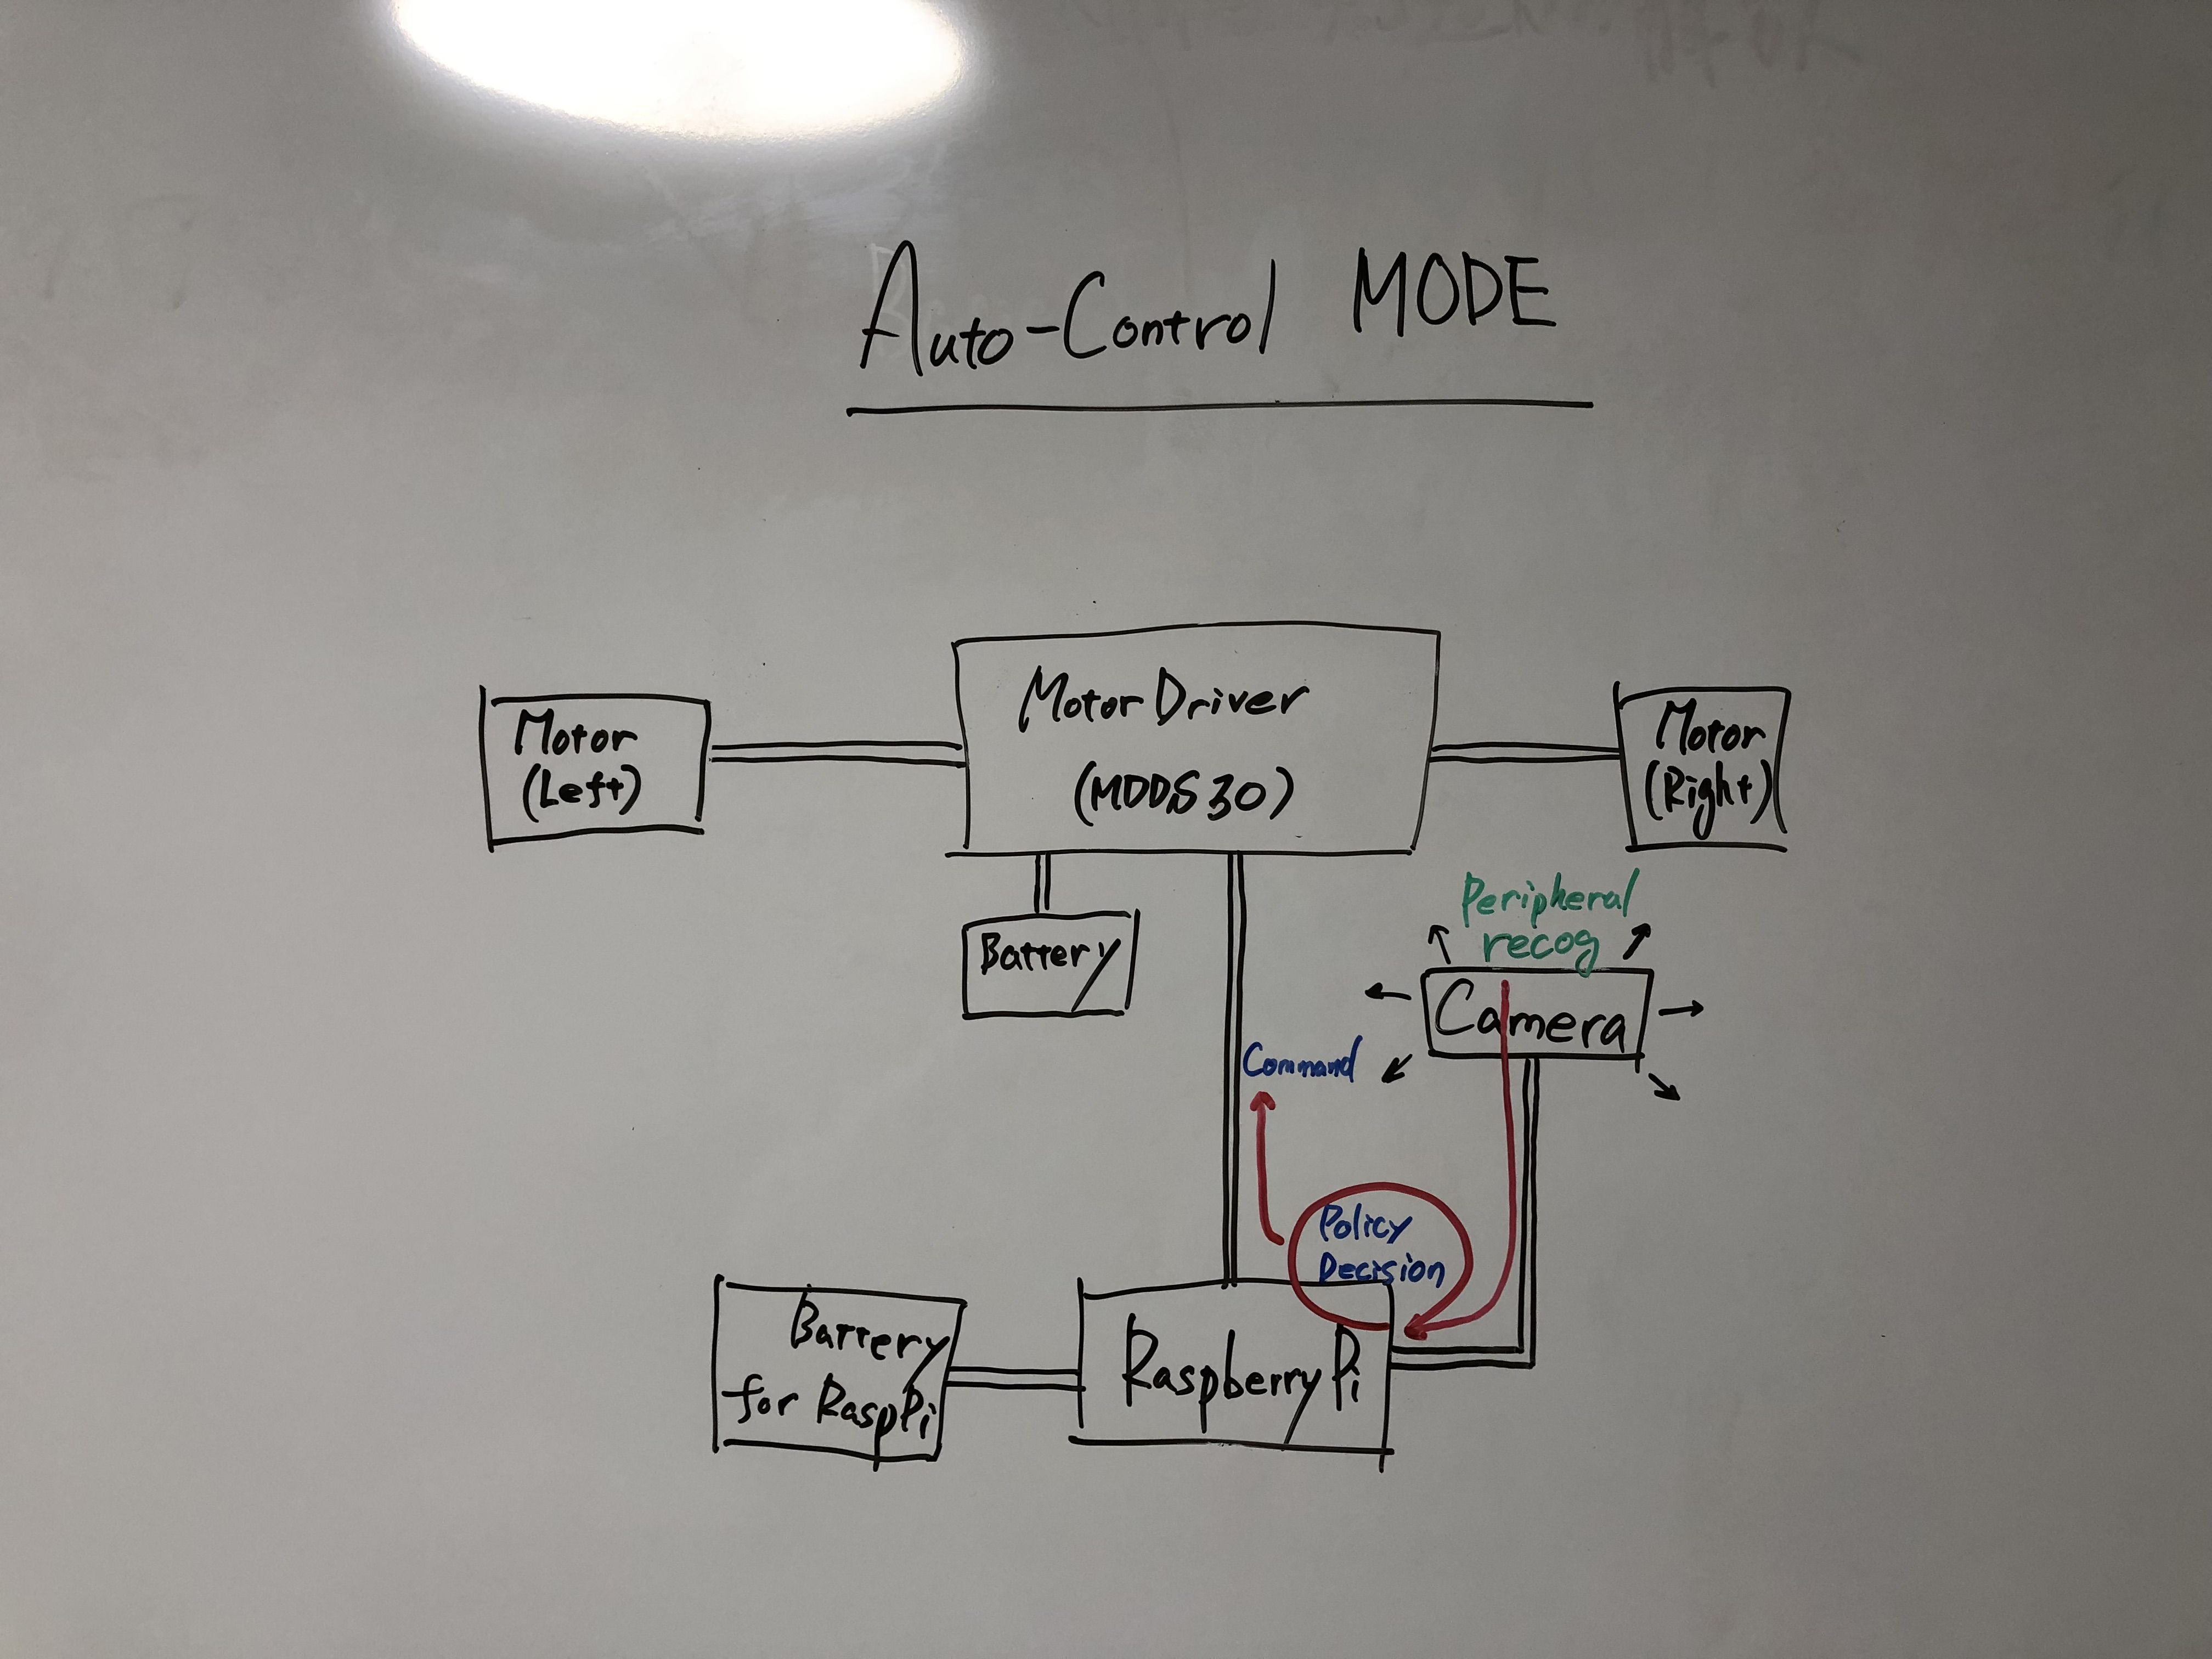 Auto-Control MODE
Motor Driver
(MDDS30)
Motor
(Left)
Motor
(Right)
Battery
Peripheral
recog
Camera
Command
Policy
Decision
Battery
for RaspPi
RaspberryPi